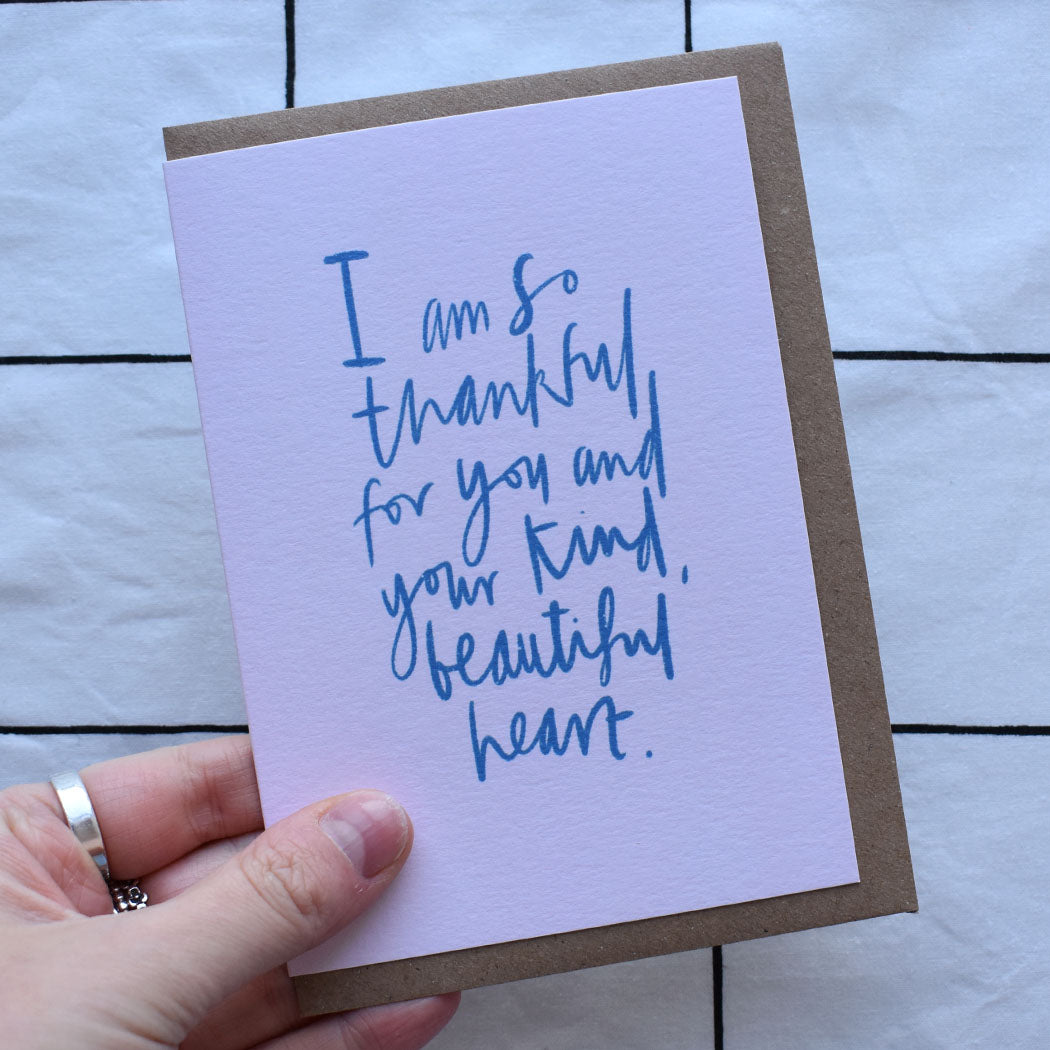 I am so
thankful
for you and
your kind,
beautiful
heart.